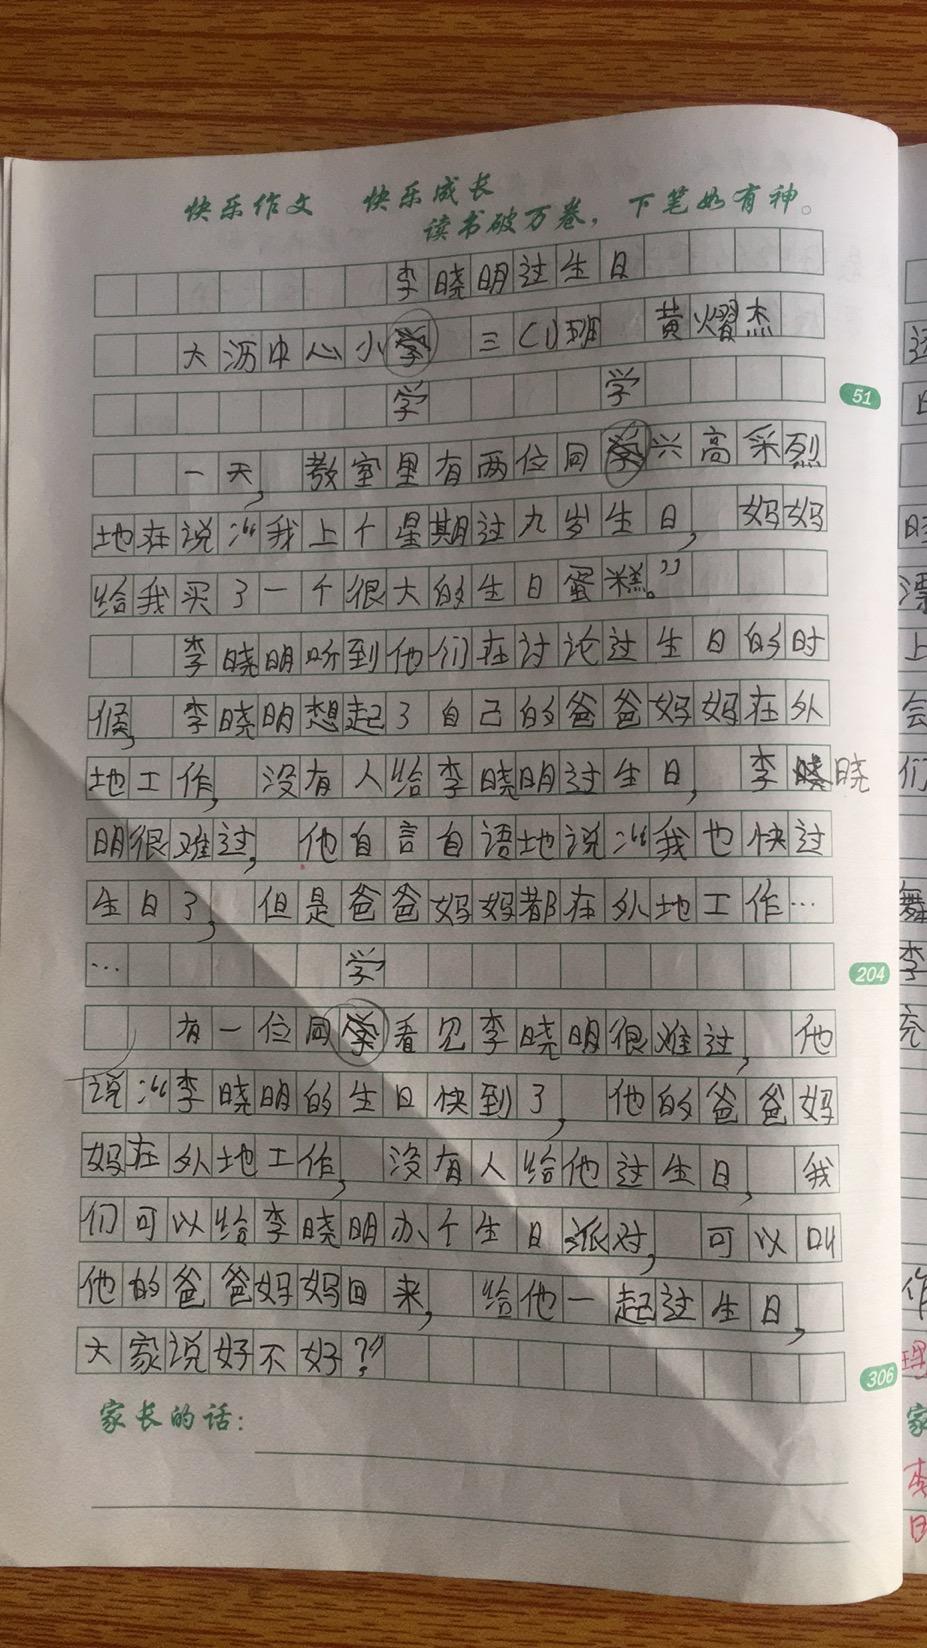 快乐作文 快乐成长
读书破万卷，下笔如有神。
李晓明过生日
大沥中心小学 三（1）班 黄熠杰
学 学
51
一天，教室里有两位同学兴高采烈
地在说：“我上个星期过九岁生日，妈妈
给我买了一个很大的生日蛋糕。”
李晓明听到他们在讨论过生日的时
候，李晓明想起了自己的爸爸妈妈在外
地工作，没有人给李晓明过生日，李晓
明很难过，他自言自语地说：“我也快过
生日了，但是爸爸妈妈都在外地工作…
… 学
204
有一位同学看见李晓明很难过，他
说：“李晓明的生日快到了，他的爸爸妈
妈在外地工作，没有人给他过生日，我
们可以给李晓明办个生日派对，可以叫
他的爸爸妈妈回来，给他一起过生日，
大家说好不好？”
306
家长的话：